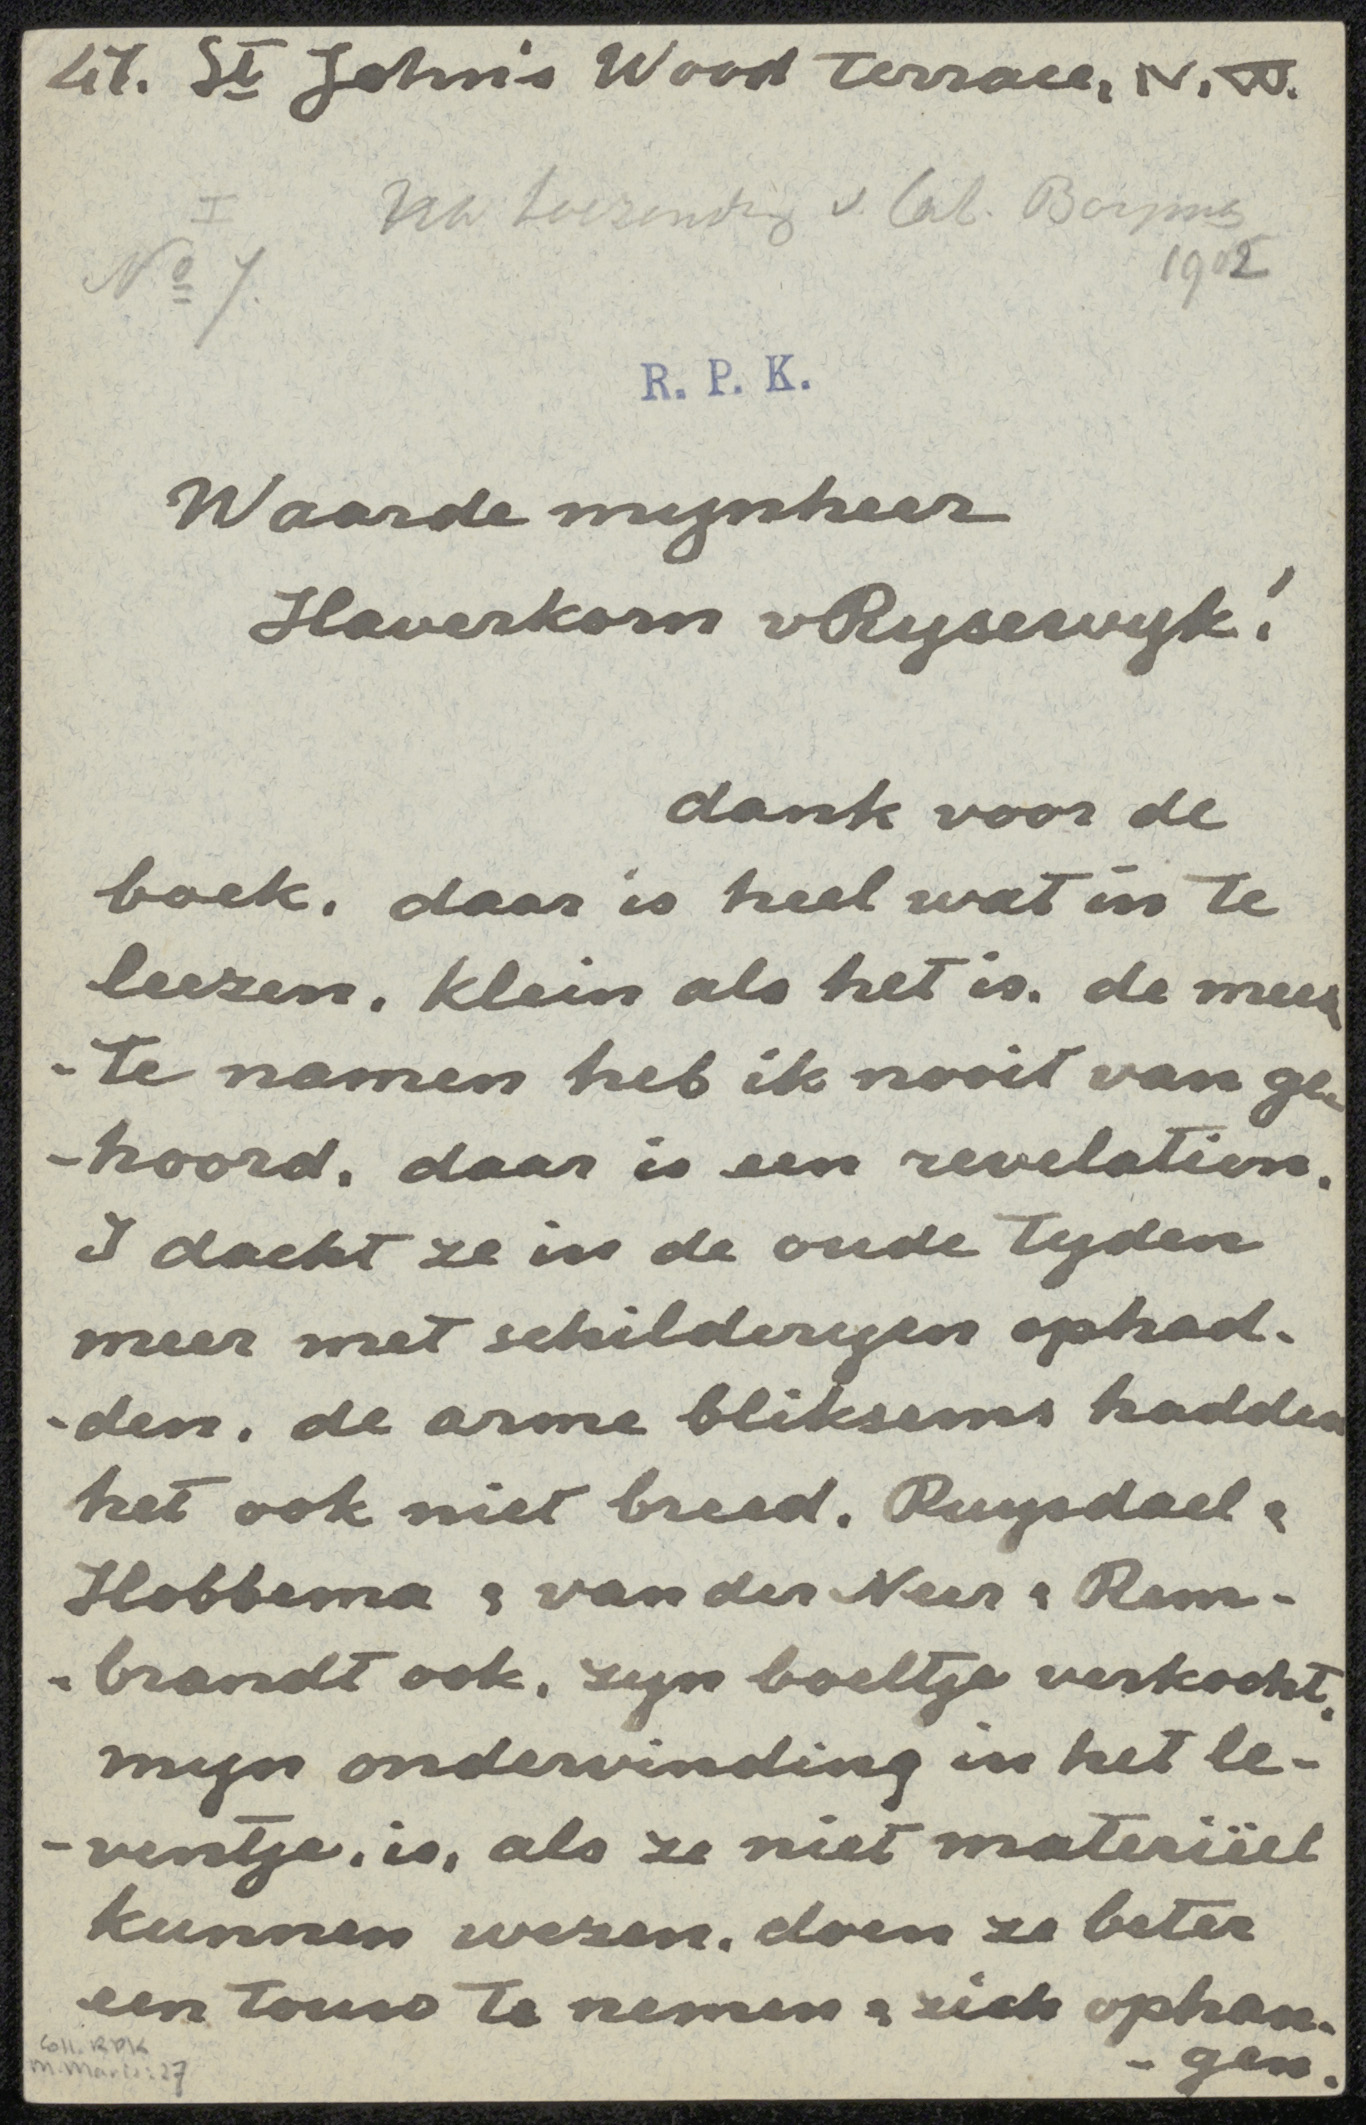 47. St John's Wood Terrace, N.W.
I Na toezending v. Cat. Boymans
No 7. 1902
R. P. K.
Waarde mynheer
Haverkorn v Rysewyk!
dank voor de
boek. daar is heel wat in te
leezen. klein als het is. de mees
-te namen heb ik nooit van ge-
-hoord. daar is een revelation.
I dacht ze in de oude tyden
meer met schilderyen ophad-
-den. de arme bliksems hadden
het ook niet breed. Ruysdael,
Hobbema, van der Neer, Rem-
-brandt ook. zyn boeltje verkocht.
myn ondervinding in het le-
-ventje. is, als ze niet materiëel
kunnen wezen. doen ze beter
een touw te nemen, zich ophan-
-gen.
Coll. RPK
M. Maris: 27